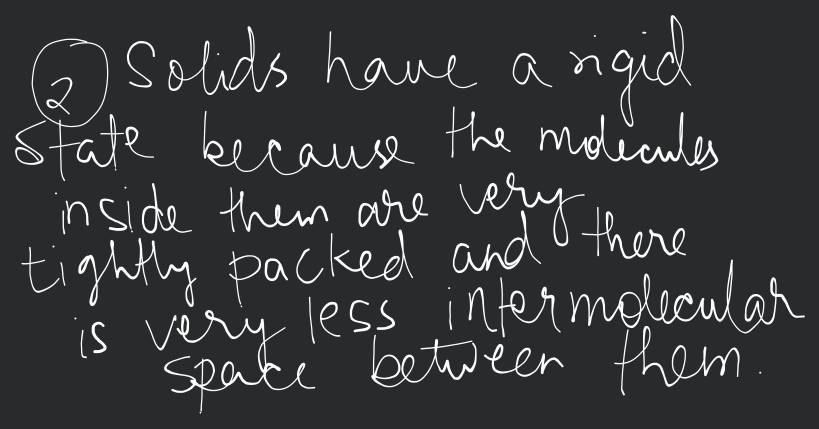 2 Solids have a rigid
state because the molecules
inside them are very
tightly packed and there
is very less intermolecular
space between them.